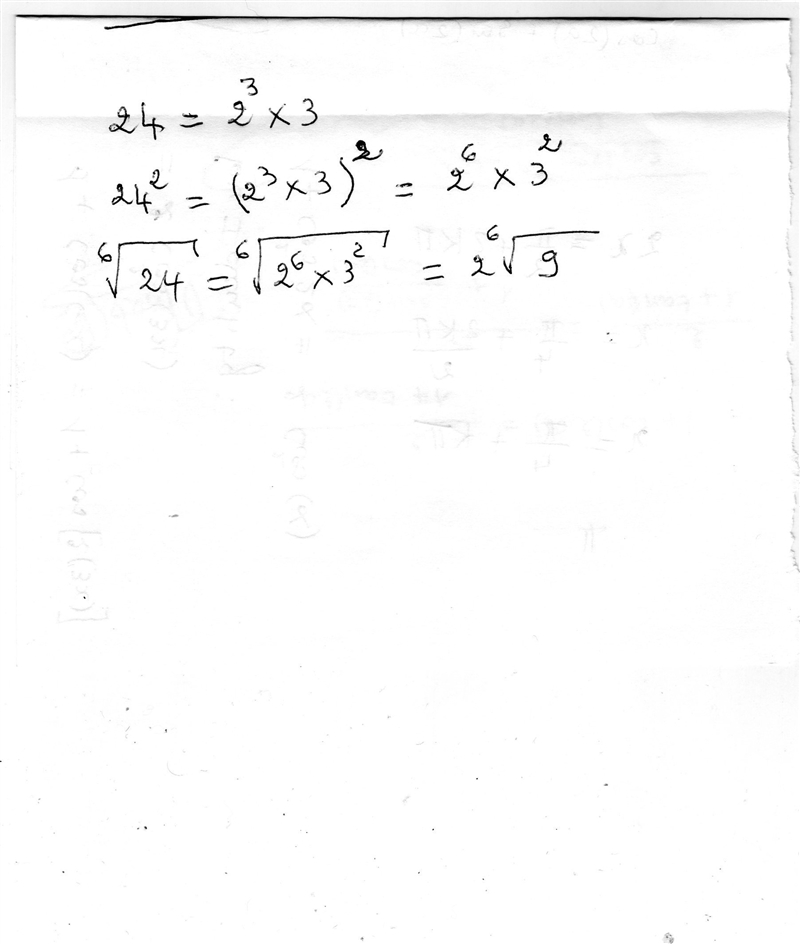 24 = 2³ × 3
24² = (2³ × 3)² = 2⁶ × 3²
⁶√24 = ⁶√(2⁶ × 3²) = 2 ⁶√9